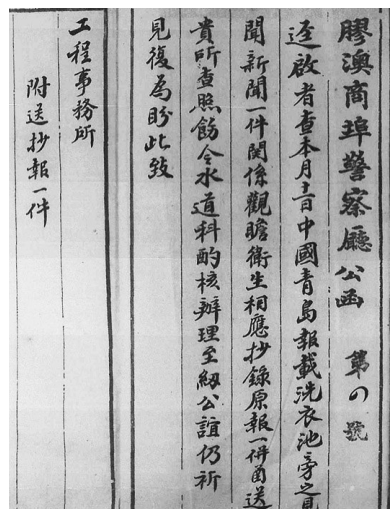 膠澳商埠警察廳公函 第 號
逕啟者查本月十一日中國青島報載洗衣池旁之見
聞新聞一件関係觀瞻衛生相應抄錄原報一件函送
貴所查照飭令水道科酌核辦理至紉公誼仍祈
見復為盼此致
工程事務所
附送抄報一件